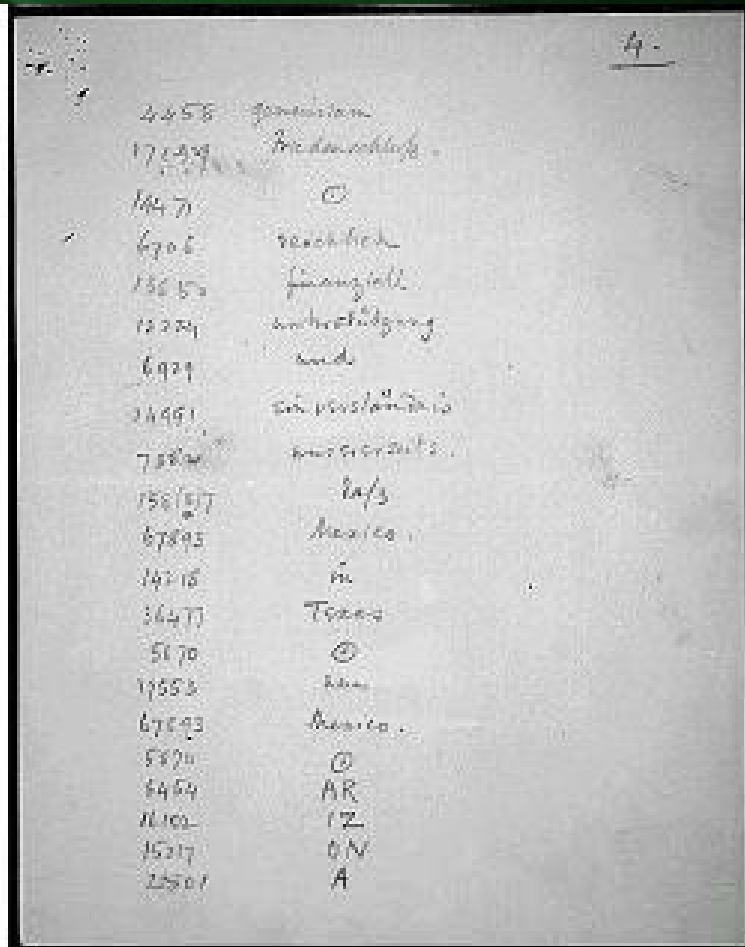 4.
4458 gemeinsam
17149 Friedenschluß.
14471 ⊙
6706 reichlich
13850 finanziell
12224 unterstützung
6929 und
14991 einverständnis
7382 unsrerseits.
158(5)7 Daß
67893 Mexico.
14218 in
36477 Texas
5670 ⊙
17553 neu
67693 Mexico.
5870 ⊙
5454 AR
16102 IZ
15217 ON
22801 A